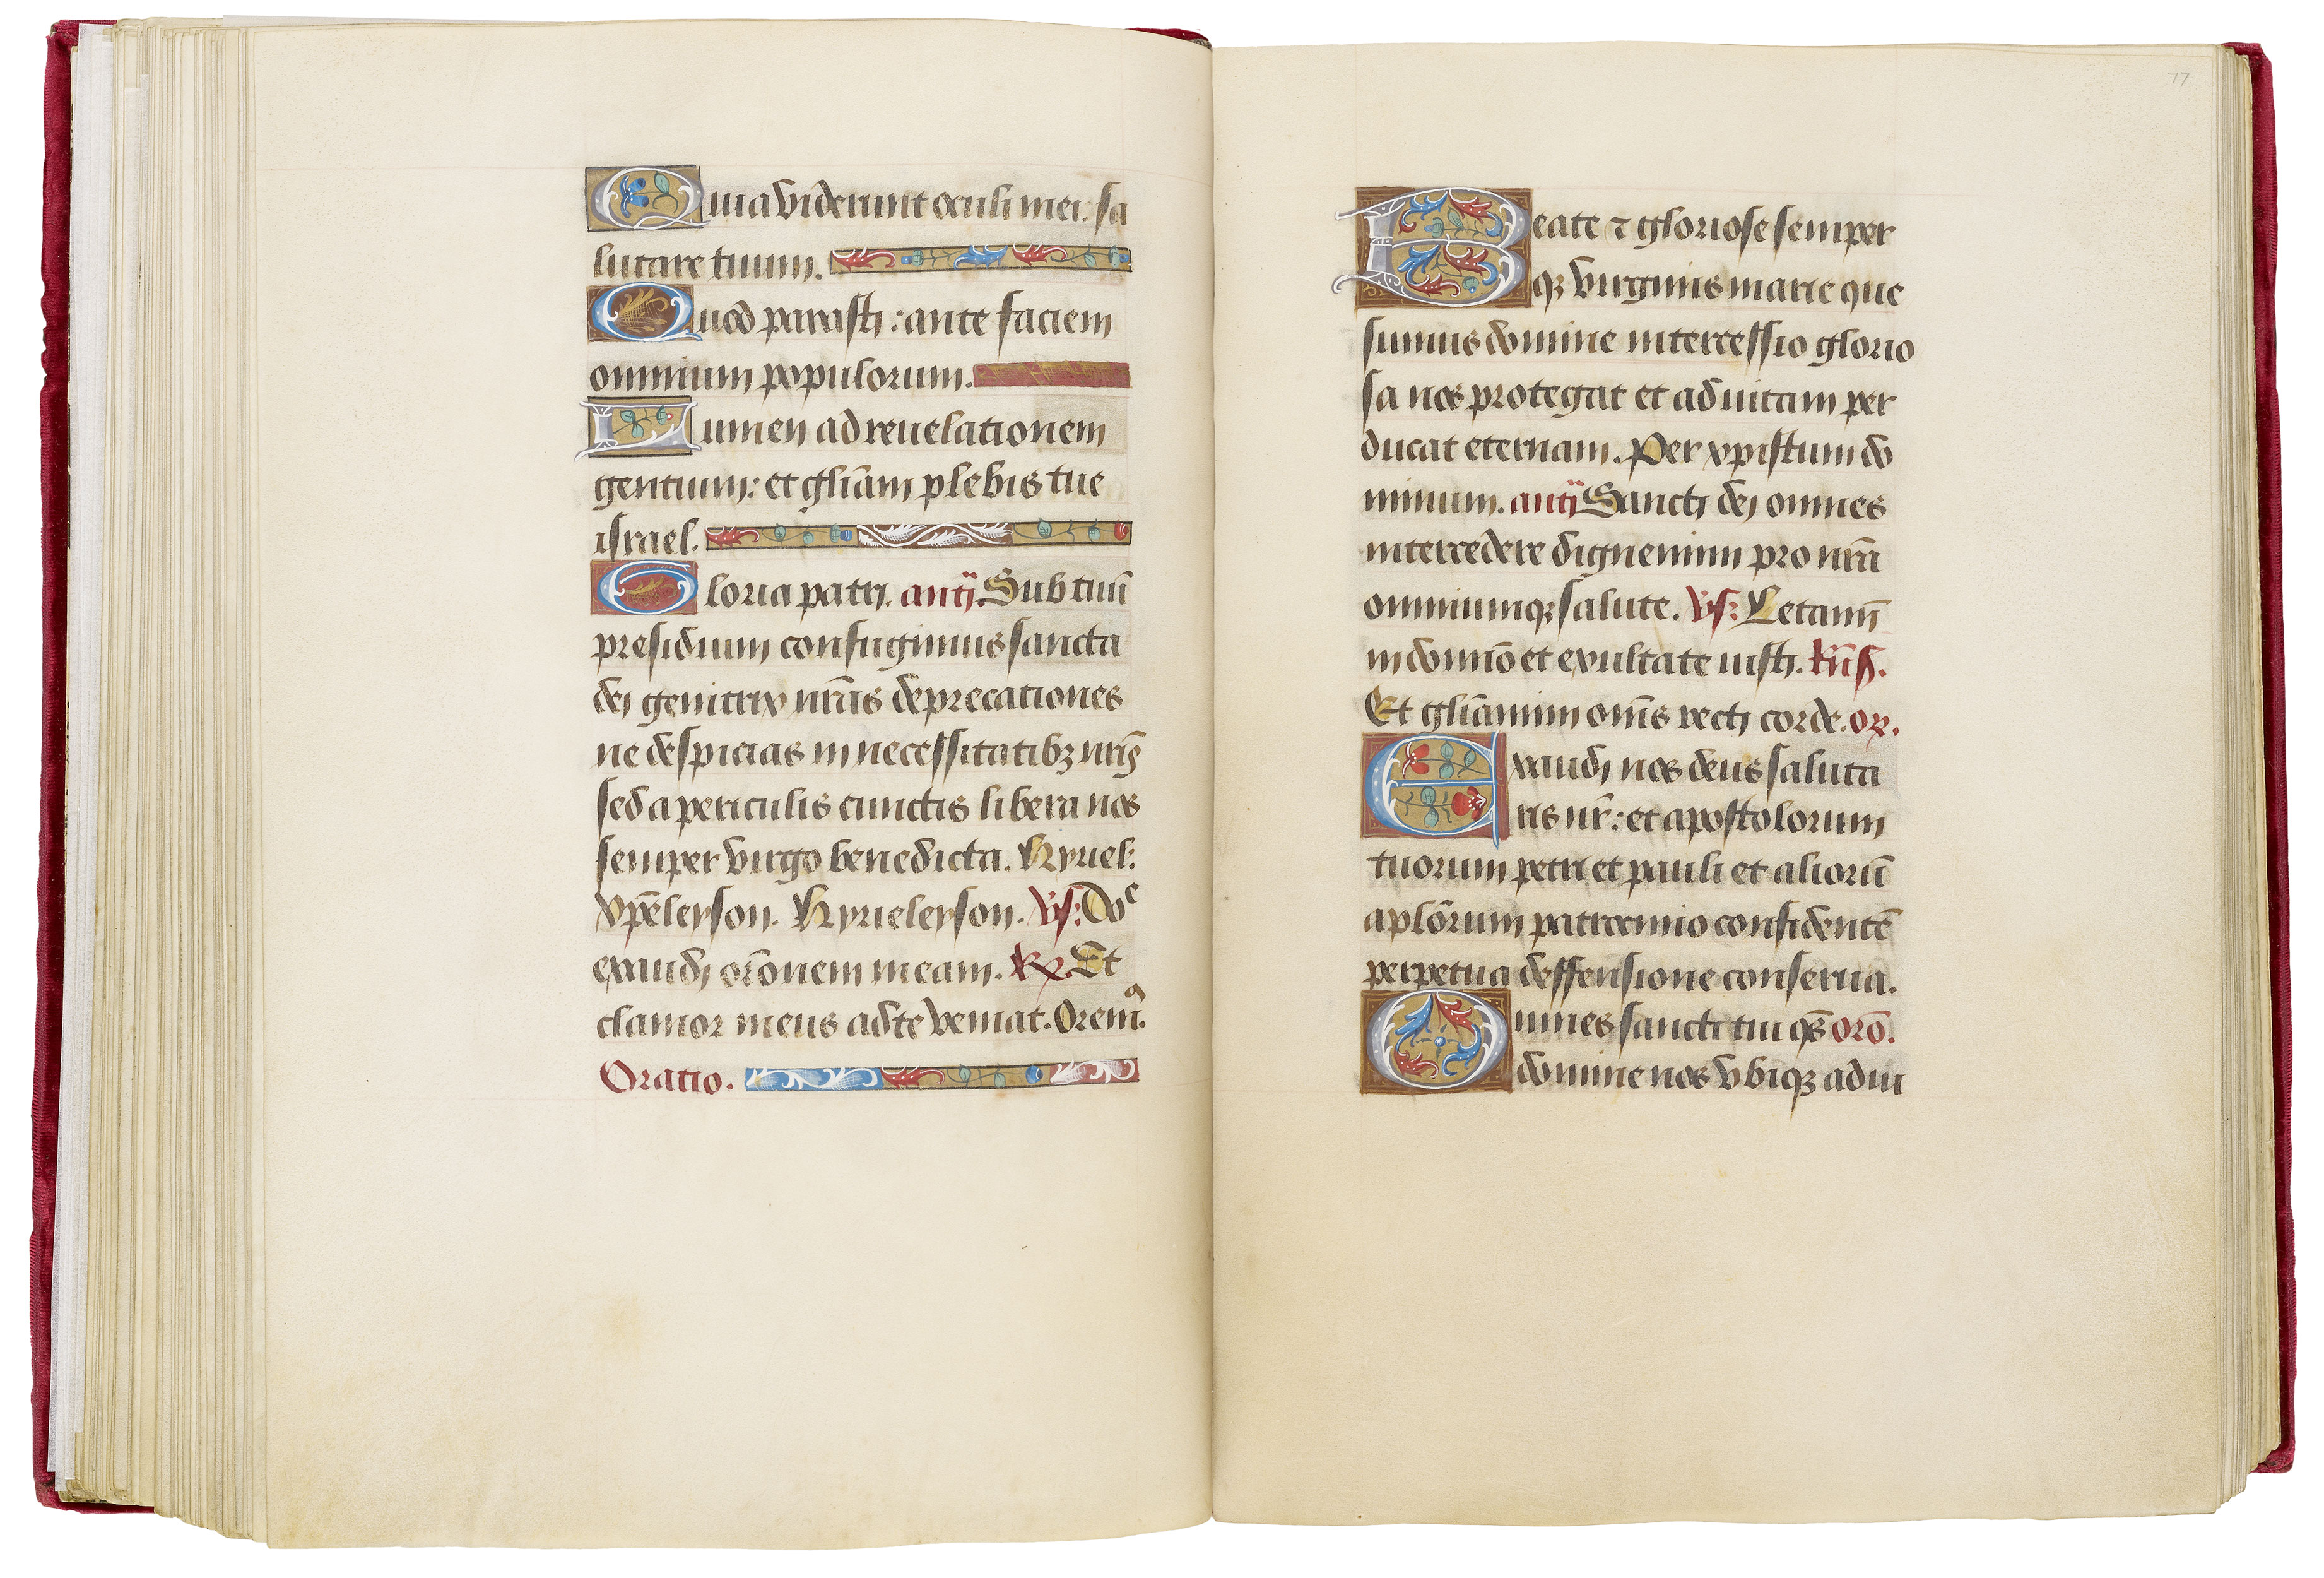 Quia viderunt oculi mei: sa
lutare tuum.
Quod parasti: ante faciem
omnium populorum.
Lumen ad reuelationem
gentium: et gl̄iam plebis tue
israel.
Gloria patri. antį̈. Sub tuū
presidium confugimus sancta
dei genitrix nr̄as deprecationes
ne despicias in necessitatibꝫ nr̄is
sed a periculis cunctis libera nos
semper virgo benedicta. Kyriel:
xp̄eleyson. Kyrieleyson. v̈s: Doᵉ
exaudi or̄onem meam. ℟. Et
clamor meus ad te veniat. Oremꝰ.
Oratio.
77
Beate ⁊ gloriose semper
qꝫ virginis marie que
sumus domine intercessio glorio
sa nos protegat et ad uitam per
ducat eternam. Per xpistum do
minum. antį̈ Sancti dei omnes
intercedere dignemini pro nr̄a
omniumqꝫ salute. v̈s: Letamī
in domīo et exultate iusti.
Et gl̄iamini om̄s recti corde. or̄.
Exaudi nos deus saluta
ris nr̄: et apostolorum
tuorum petri et pauli et aliorū
apl̄orum patrocinio confidentē
perpetua deffensione conserua.
Omnes sancti tui qs̄ orō.
domine nos vbiqꝫ adiu